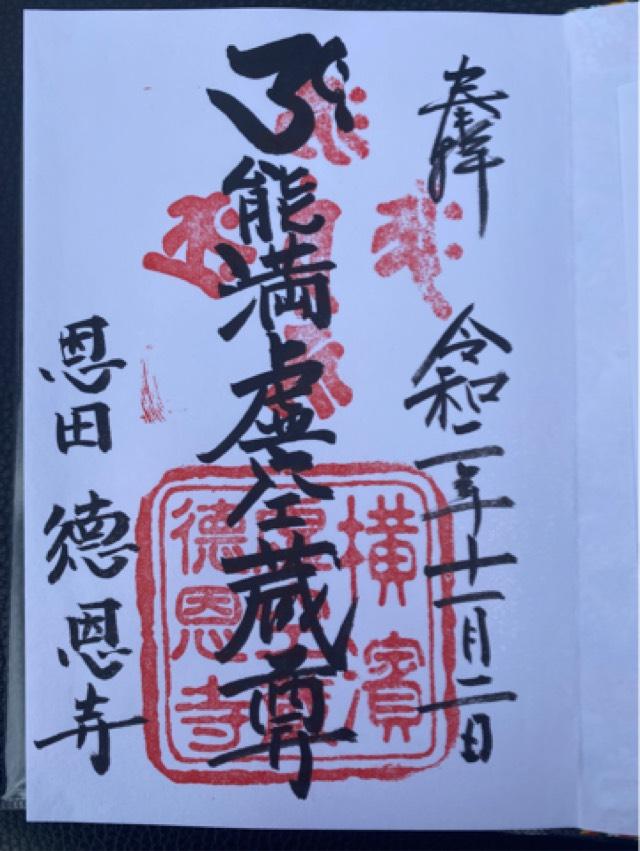 奉拝
令和二年十一月二日
能満虚空蔵尊
恩田 徳恩寺
横濱
徳恩寺